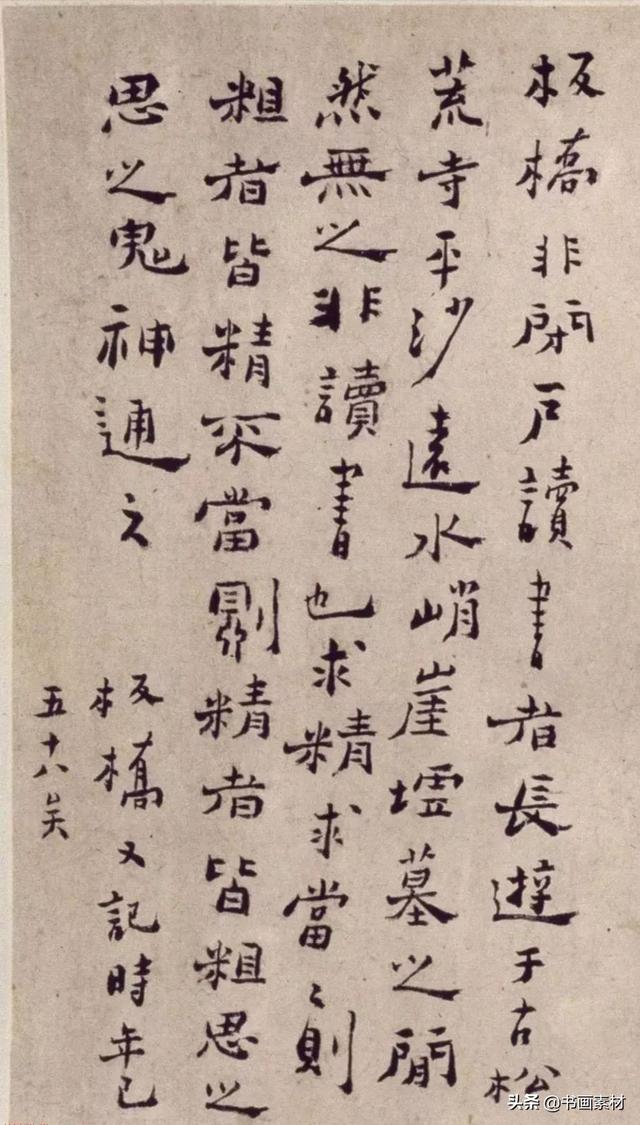 板橋非閉戶讀書者長遊于古松
荒寺平沙遠水峭崖墟墓之間
然無之非讀書也求精求當〻則
粗者皆精不當則精者皆粗思之
思之鬼神通之
板橋又記時年已
五十八矣
头条 @书画素材